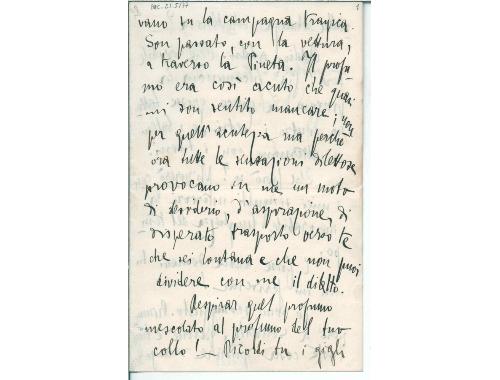 vano su la campagna tragica.
Son passato, con la vettura,
a traverso la Pineta. Il profu-
mo era così acuto che quasi
mi son sentito mancare; non
per quell'acutezza ma perchè
ora tutte le sensazioni dilettose
provocano in me un moto
di desiderio, d'aspirazione, di
disperato trasporto verso te
che sei lontana e che non puoi
dividere con me il diletto.
Respirar quel profumo
mescolato al profumo del tuo
collo! — Ricordi tu i gigli